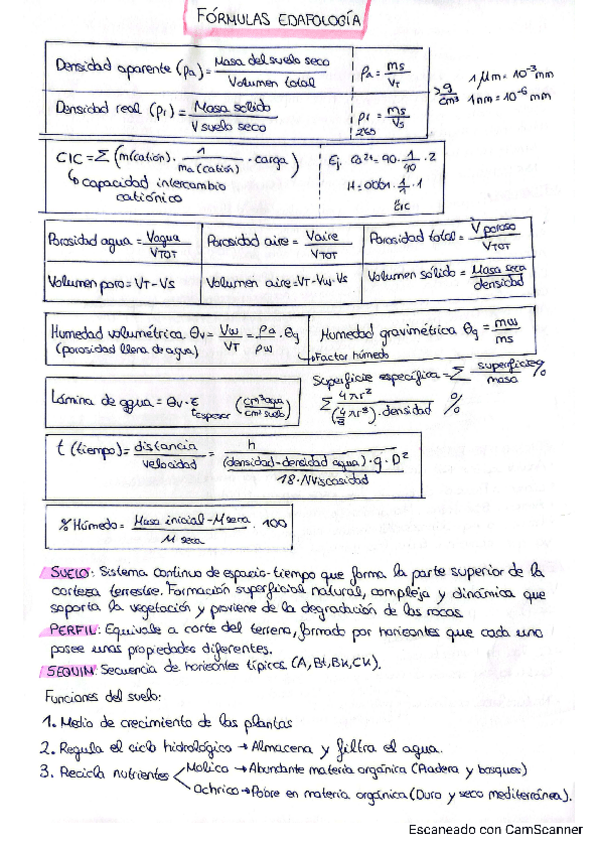 FÓRMULAS EDAFOLOGÍA
Densidad aparente (ρa) = Masa del suelo seco / Volumen total
ρa = ms / VT
> g/cm³
1 μm = 10⁻³ mm
1 nm = 10⁻⁶ mm
Densidad real (ρr) = Masa sólido / V suelo seco
ρr = ms / Vs
2,65
CIC = Σ (m(catión) · 1 / ma(catión) · carga)
↳ capacidad intercambio
catiónico
Ej. Ca²⁺ = 90 · 1/40 · 2
H = 0,001 · 1/1 · 1
CIC
Porosidad agua = Vagua / VTOT
Porosidad aire = Vaire / VTOT
Porosidad total = V poroso / VTOT
Volumen poro = VT - Vs
Volumen aire = VT - Vw - Vs
Volumen sólido = Masa seca / densidad
Humedad volumétrica θv = Vw / VT = ρa / ρw · θg
(porosidad llena de agua)
Humedad gravimétrica θg = mw / ms
↳ Factor húmedo
Superficie específica = Σ superficie / masa %
Σ 4πr² / (4/3 πr³) · densidad %
Lámina de agua = θv · t (cm³ agua / cm³ suelo)
t Espesor
t (tiempo) = distancia / velocidad = h / (densidad - densidad agua) · g · D² / 18 · Nviscosidad
% Húmedo = Masa inicial - M seca / M seca · 100
SUELO: Sistema continuo de espacio-tiempo que forma la parte superior de la
corteza terrestre. Formación superficial natural, compleja y dinámica que
soporta la vegetación y proviene de la degradación de las rocas.
PERFIL: Equivale a corte del terreno, formado por horizontes que cada uno
posee unas propiedades diferentes.
SEQUIN: Secuencia de horizontes típicos. (A, Bt, Bk, Ck).
Funciones del suelo:
1. Medio de crecimiento de las plantas
2. Regula el ciclo hidrológico → Almacena y filtra el agua.
3. Recicla nutrientes
Molico → Abundante materia orgánica (Pradera y bosques)
Ochrico → Pobre en materia orgánica (Duro y seco mediterránea).
Escaneado con CamScanner